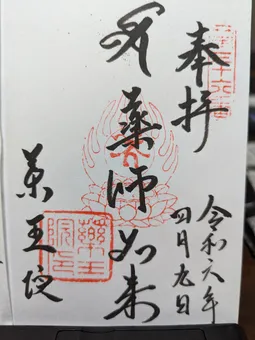 奉拝
令和六年
四月九日
薬師如来
薬王院
薬王院印